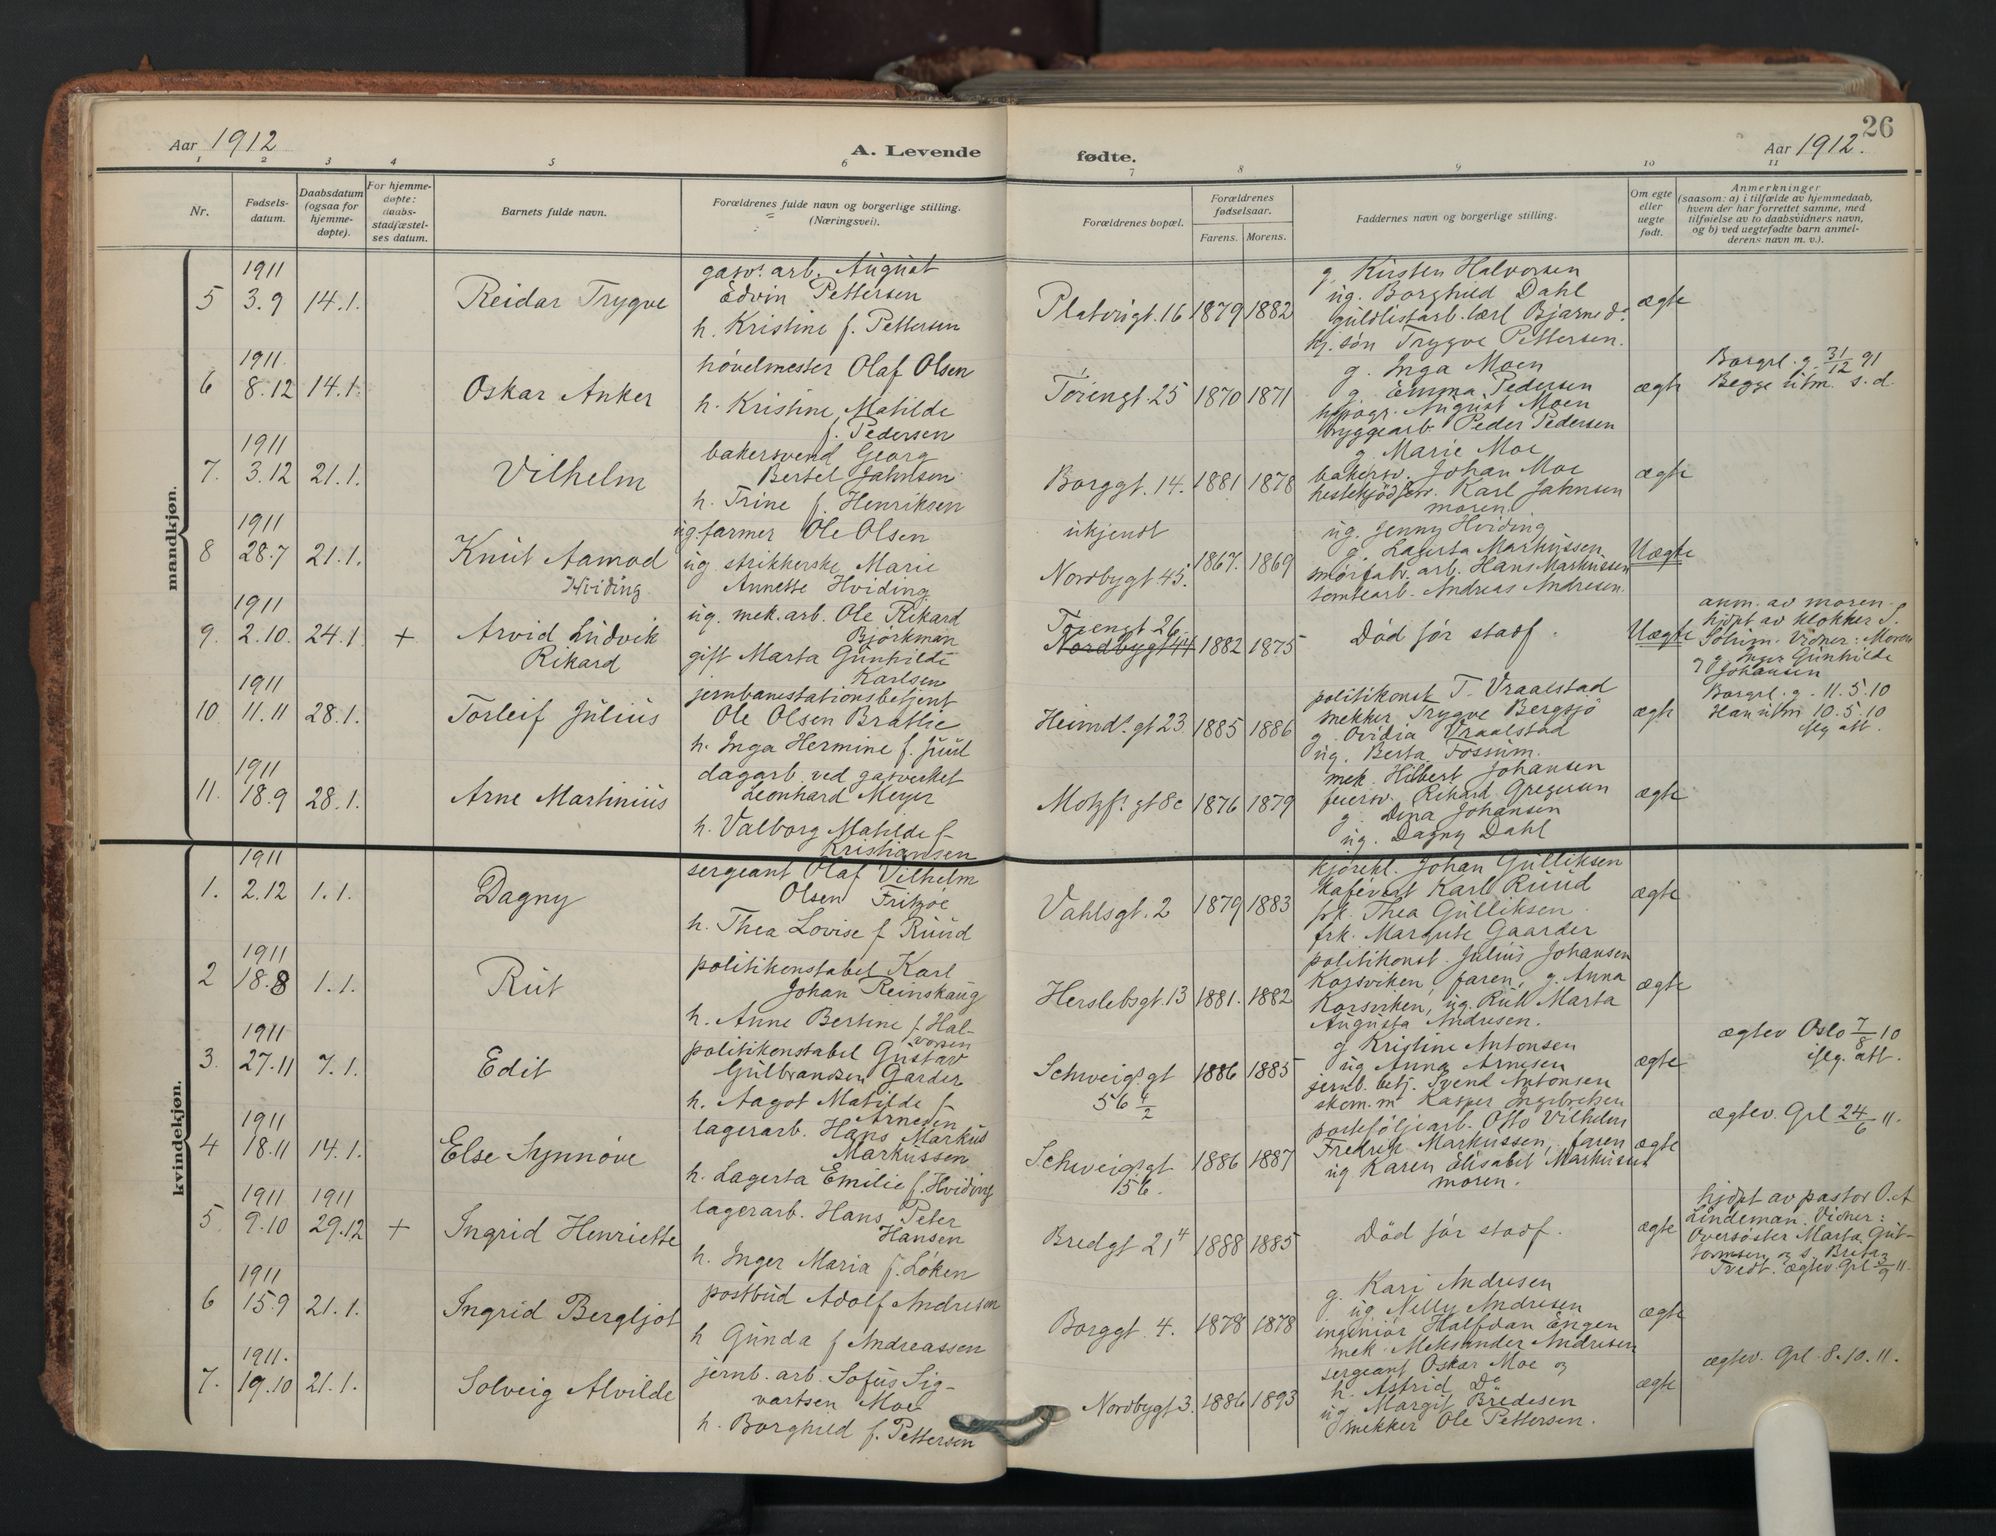 26
Aar 1912
A. Levende
fødte.
Aar 1912.
1 2 3 4 5 6 7 8 9 10 11
Nr.
Fødsels-
datum.
Daabsdatum
(ogsaa for
hjemme-
døpte).
For hjemme-
døpte:
daabs-
stadfæstel-
ses datum.
Barnets fulde navn.
Forældrenes fulde navn og borgerlige stilling.
(Næringsvei).
Forældrenes bopæl.
Forældrenes
fødselsaar.
Farens. Morens.
Faddernes navn og borgerlige stilling.
Om egte
eller
uegte
født.
Anmerkninger
(saasom: a) i tilfælde av hjemmedaab,
hvem der har forrettet samme, med
tilføielse av to daabsvidners navn,
og b) ved uegtefødte barn anmel-
derens navn m. v.).
mandkjøn.
5
1911
3.9
14.1.
Reidar Trygve
gasv. arb. August
Edvin Pettersen
h. Kristine f. Pettersen
Platousgt. 16
1879
1882
g. Kirsten Halvorsen
ug. Borghild Dahl
guldlistarb. lærl Bjarne do
hj. søn Trygve Pettersen.
ægte
6
1911.
8.12
14.1.
Oskar Anker
høvelmester Olaf Olsen
h. Kristine Matilde
f. Pedersen
Tøiengt. 25
1870
1871
g. Inga Moen
g. Emma Pedersen
typogr. August Moen
bryggearb. Peder Pedersen
ægte
Borgrl. g. 31/12 91
Begge utm. s. d.
7.
1911
3.12
21.1.
Vilhelm
bakersvend Georg
Bertel Jahnsen
h. Trine f. Henriksen
Borggt. 14.
1881
1878
g. Marie Moe
bakersv. Johan Moe
Karl Jahnsen
moren.
ægte
8
1911
28.7
21.1.
Knut Aamod
Hviding
ug. farmer Ole Olsen
ug. strikkerske Marie
Annette Hviding
ukjendt
Nordbygt 45.
1867.
1869
ug. Jenny Hviding
g. Lagerta Markussen
smørfabr. arb. Hans Markussen
tomtearb. Andreas Andresen.
Uægte
9.
1911
2.10.
24.1
+
Arvid Ludvik
Rikard
ug. mek. arb. Ole Rikard
Björkman
gift Marta Gunhilde
Karlsen
Tøiengt 26
Nordbygt 44
1882
1875
Død før stadf.
Uægte
anm. av moren.
hjdpt av klokker S.
Solum. Vidner: Moren
og g. Inger Gunhilde
Johansen
10.
1911
11.11
28.1.
Torleif Julius
jernbanestationsbetjent
Ole Olsen Bratlie
h. Inga Hermine f. Juul
Heimds. gt 23
1885
1886
politikonst T. Vraalstad
snekker Trygve Bergsjö
g. Ovidia Vraalstad
ug. Berta Fossum.
ægte
Borgrl. g. 11.5.10
Han utm 10.5.10
iflg att.
11.
1911
18.9
28.1.
Arne Martinius
dagarb. ved gasverket
Leonhard Meyer
h. Valborg Matilde f.
Kristiansen
Motzfs. gt 8c
1876
1879
mek. Hilbert Johansen
feiersv. Rikard Gregersen
g. Dina Johansen
ug. Dagny Dahl
ægte
kvindekjøn.
1.
1911
2.12
1.1.
Dagny
sergeant Olaf Vilhelm
Olsen Fritzøe
h. Thea Lovise f. Ruud
Vahlsgt. 2
1879
1883
kjørekl. Johan Gulliksen
kafévert Karl Ruud
frk. Thea Gulliksen
frk. Margrete Gaarder
ægte
2
1911
18.8
1.1.
Rut
politikonstabel Karl
Johan Reinskaug
h. Anne Bertine f. Hal-
vorsen
Herslebsgt. 13
1881.
1882
politikonst. Julius Johansen
Korsviken, faren, g. Anna
Korsviken, ug. Rut Marta
Augusta Andresen.
ægte
3.
1911
27.11
7.1.
Edit
politikonstabel Gustav
Gulbrandsen Garder
h. Aagot Matilde f.
Arnesen
Schweigs. gt
56 4/2
1886
1885
g. Kristine Antonsen
ug Anna Arnesen
jernb. betj. Svend Antonsen
skom. m. Kasper Ingebretsen
ægte
ægtev Oslo 7/8 10
iflg. att.
4
1911
18.11
14.1.
Else Synnøve
lagerarb. Hans Markus
Markussen
h. Lagerta Emilie f. Hviding
Schweigs. gt
56.
1886
1887
porteføljearb. Otto Vilhelm
Fredrik Markussen, faren
ug Karen Elisabet Markussen
moren.
ægte
ægtev. Grl 24/6 11.
5
1911
9.10
1911
29.12
+
Ingrid Henriette
lagerarb. Hans Peter
Hansen
h. Inger Maria f. Løken
Bredgt 21 4
1888
1885
Død før stadf.
ægte
hjdpt av pastor O. A
Lindeman. Vidner:
Oversøster Marta Gut-
tormsen og s. Breta
Tvedt. ægtev. Grl 3/9 11.
6
1911
15.9
21.1.
Ingrid Bergljot
postbud Adolf Andresen
h Gunda f Andreassen
Borggt. 4.
1878
1878
g. Kari Andresen
ug Nelly Andresen
ingeniør Halfdan Engen
mek. Aleksander Andresen
ægte
7.
1911.
19.10
21.1.
Solveig Alvilde
jernb. arb. Sofus Sig-
vartsen Moe
h. Borghild f. Pettersen
Nordbygt 3.
1886
1893
sergeant Oskar Moe og
h. Astrid Do
ug. Margit Brédesen
snekker Ole Pettersen.
ægte
ægtev. Grl. 8.10.11.